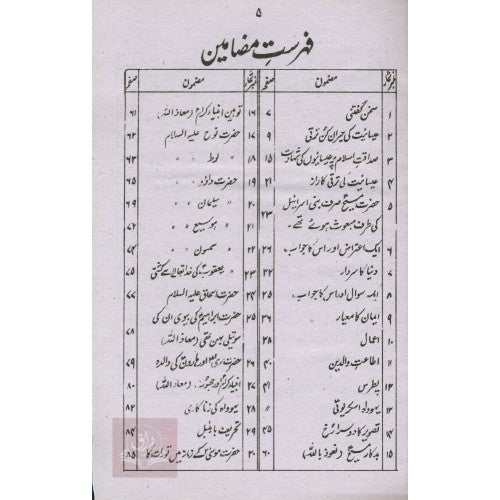 ۵
فہرستِ مضامین
نمبر شمار مضمون صفحہ
۱ سخن گفتنی ۷
۲ عیسائیت کی حیران کن ترقی ۹
۳ صداقتِ اسلام پر عیسائیوں کی شہادت ۱۵
۴ عیسائیت کی ترقی کا راز ۲۱
۵ حضرت مسیحؑ صرف بنی اسرائیل
کی طرف مبعوث ہوئے تھے۔ ۲۳
۶ ایک اعتراض اور اس کا جواب۔ ۲۶
۷ دنیا کا سردار ۲۲
۸ ایک سوال اور اس کا جواب۔ ۲۵
۹ ایمان کا معیار ۲۶
۱۰ اعمال ۲۸
۱۱ اطاعتِ والدین ۴۰
۱۲ پطرس ۴۱
۱۳ یہوداہ اسکریوتی "
۱۴ تصویر کا دوسرا رخ ۴۵
۱۵ بدکار مسیح (نعوذ باللہ) ۶۰
نمبر شمار مضمون صفحہ
۱۶ توہینِ انبیاء کرام (معاذ اللہ) ۶۱
۱۷ حضرت نوح علیہ السلام ۶۲
۱۸ " لوط " " ۶۲
۱۹ حضرت داؤد " " ۶۵
۲۰ " سلیمان " " ۶۹
۲۱ " ہوسیع " " ۷۲
۲۲ " سمسون " " ۷۴
۲۳ " یعقوبؑ کی خدا تعالیٰ سے کشتی ۷۵
۲۴ حضرت اسحاق علیہ السلام ۷۷
۲۵ حضرت ابراہیمؑ کی بیوی ان کی
سوتیلی بہن تھی (معاذ اللہ) ۷۸
۲۶ حضرت موسیٰ اور ہارونؑ کی والدہ ۷۹
۲۷ انبیاء کرام اور جھوٹ۔ (معاذ اللہ) ۸۰
۲۸ یہوداہ کی زناکاری ۸۲
۲۹ تحریفِ بائیبل ۸۴
۳۰ حضرت موسیٰؑ کے زمانہ میں تورات کا ۸۵